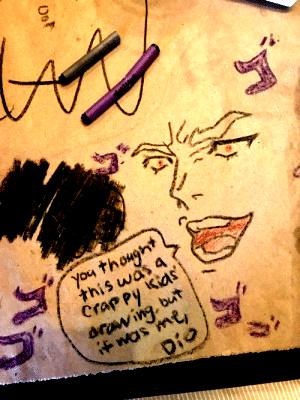 ゴ
ゴ
you thought
this was a
crappy kids'
drawing, but
it was me,
Dio
ゴ
ゴ
ゴ
ゴ